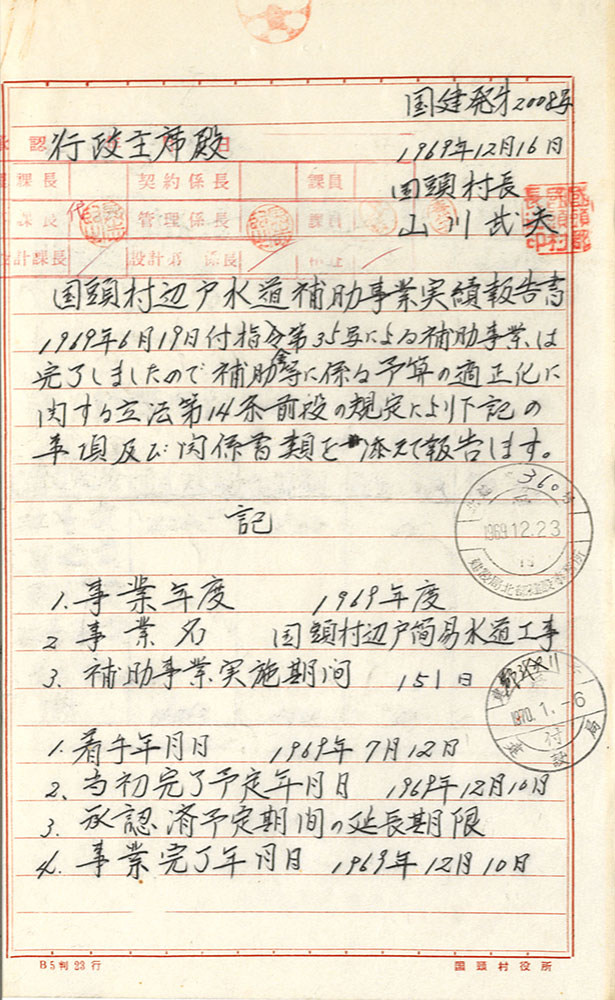 国建発才2008号
行政主席殿
1969年12月16日
承認 年 月 日
課長 契約係長 課員
国頭村長
課長 代 管理係長
山川武夫
設計課長 設計係長 検査
国頭村辺戸水道補助事業実績報告書
1969年6月19日付指令第35号による補助事業は
完了しましたので補助金等に係る予算の適正化に
関する立法第14条前段の規定により下記の
事項及び関係書類を添えて報告します。
記
360号
1969.12.23
建設局北部建設事務所
1. 事業年度 1969年度
2 事業名 国頭村辺戸簡易水道工事
3. 補助事業実施期间 151日
1970.1.-6
受付
建設局
1. 着手年月日 1969年7月12日
2. 当初完了予定年月日 1969年12月10日
3. 承認済予定期間の延長期限
4. 事業完了年月日 1969年12月10日
B5判23行
国頭村役所